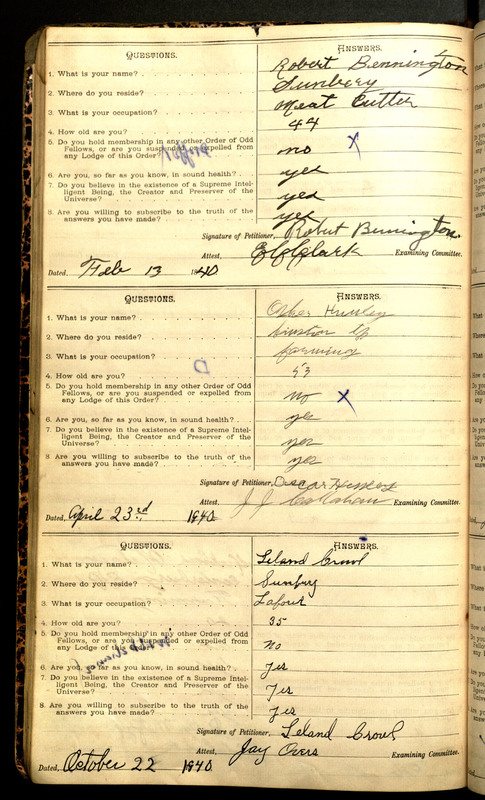 QUESTIONS. ANSWERS.
1. What is your name? Robert Bennington
2. Where do you reside? Sunbery
3. What is your occupation? Meat Cutter
4. How old are you? 44
5. Do you hold membership in any other Order of Odd
Fellows, or are you suspended or expelled from
any Lodge of this Order? no X
6. Are you, so far as you know, in sound health? yes
7. Do you believe in the existence of a Supreme Intel-
ligent Being, the Creator and Preserver of the
Universe? yes
8. Are you willing to subscribe to the truth of the
answers you have made? yes
Signature of Petitioner, Robert Bennington.
Attest, Clark Examining Committee.
Dated, Feb 13 1840
QUESTIONS. ANSWERS.
1. What is your name?
2. Where do you reside?
3. What is your occupation? farming
4. How old are you? 53
D
5. Do you hold membership in any other Order of Odd
Fellows, or are you suspended or expelled from
any Lodge of this Order? no X
6. Are you, so far as you know, in sound health? yes
7. Do you believe in the existence of a Supreme Intel-
ligent Being, the Creator and Preserver of the
Universe? yes
8. Are you willing to subscribe to the truth of the
answers you have made? yes
Signature of Petitioner, Oscar
Attest, J J Callahan Examining Committee.
Dated, April 23rd. 1940
QUESTIONS. ANSWERS.
1. What is your name? Leland Crowl
2. Where do you reside? Sunbury
3. What is your occupation? Labour
4. How old are you? 35
5. Do you hold membership in any other Order of Odd
Fellows, or are you suspended or expelled from
any Lodge of this Order? no
6. Are you, so far as you know, in sound health? yes
7. Do you believe in the existence of a Supreme Intel-
ligent Being, the Creator and Preserver of the
Universe? yes
8. Are you willing to subscribe to the truth of the
answers you have made? yes
Signature of Petitioner, Leland Crowl
Attest, Jay Overs Examining Committee.
Dated, October 22 1940